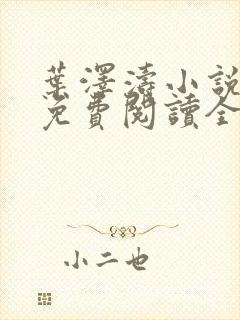 葉澤濤小說
免費閱讀全
小二也